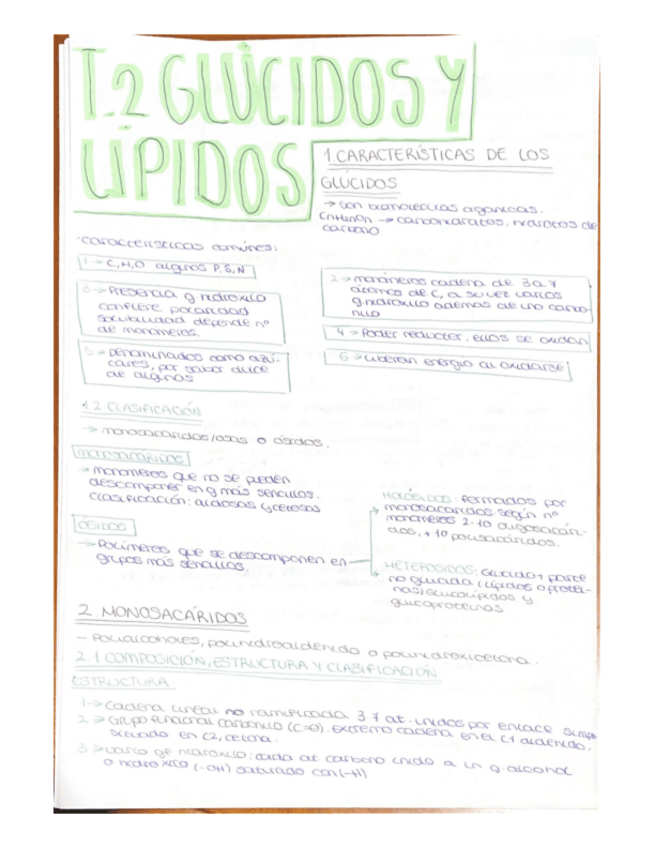 T.2 GLÚCIDOS Y
LÍPIDOS
1. CARACTERÍSTICAS DE LOS
GLÚCIDOS
→ Son biomoléculas orgánicas.
CnH2nOn → carbohidratos. hidratos de
carbono
·características comunes:
1→ C, H, O algunos P, S, N
2→ monómeros cadena de 3 a 7
átomos de C, a su vez varios
g. hidroxilo además de uno carbo-
nilo
3→ Presencia g. hidroxilo
confiere polaridad
solubilidad depende nº
de monómeros.
4→ Poder reductor, ellos se oxidan
5→ Denominados como azú-
cares, por sabor dulce
de algunos
6→ Liberan energía al oxidarse
1.2 CLASIFICACIÓN
→ monosacáridos/osas o ósidos.
MONOSACÁRIDOS
→ Monómeros que no se pueden
descomponer en g más sencillos.
Clasificación: aldosas y cetosas
ÓSIDOS
→ Polímeros que se descomponen en
grupos más sencillos.
HOLÓSIDOS: formados por
monosacáridos según nº
monómeros 2-10 oligosacári-
dos, +10 polisacáridos.
HETERÓSIDOS: Glúcido + parte
no glúcida (lípidos o proteí-
nas) Glucolípidos y
glucoproteínas
2. MONOSACÁRIDOS
– Polialcoholes, polihidroaldehído o polihidroxicetona.
2.1 COMPOSICIÓN, ESTRUCTURA Y CLASIFICACIÓN
ESTRUCTURA
1→ Cadena lineal no ramificada 3-7 at. unidos por enlace simple
2→ Grupo funcional carbonilo (C=O). Extremo cadena en el C1 aldehído.
situado en C2, cetona.
3→ varios gr hidroxilo: cada at carbono unido a un g. alcohol
o hidroxilo (-OH) saturado con (-H)